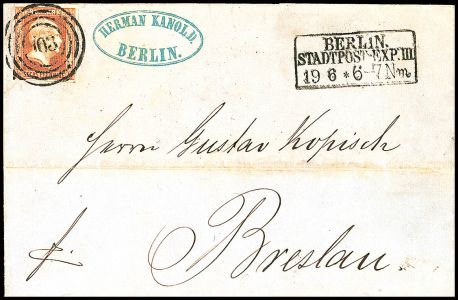 103
HERMAN KANOLD.
BERLIN.
BERLIN.
STADTPOST-EXP. III
19 6 * 6-7 Nm
Herrn Gustav Kopisch
fr.
Breslau.